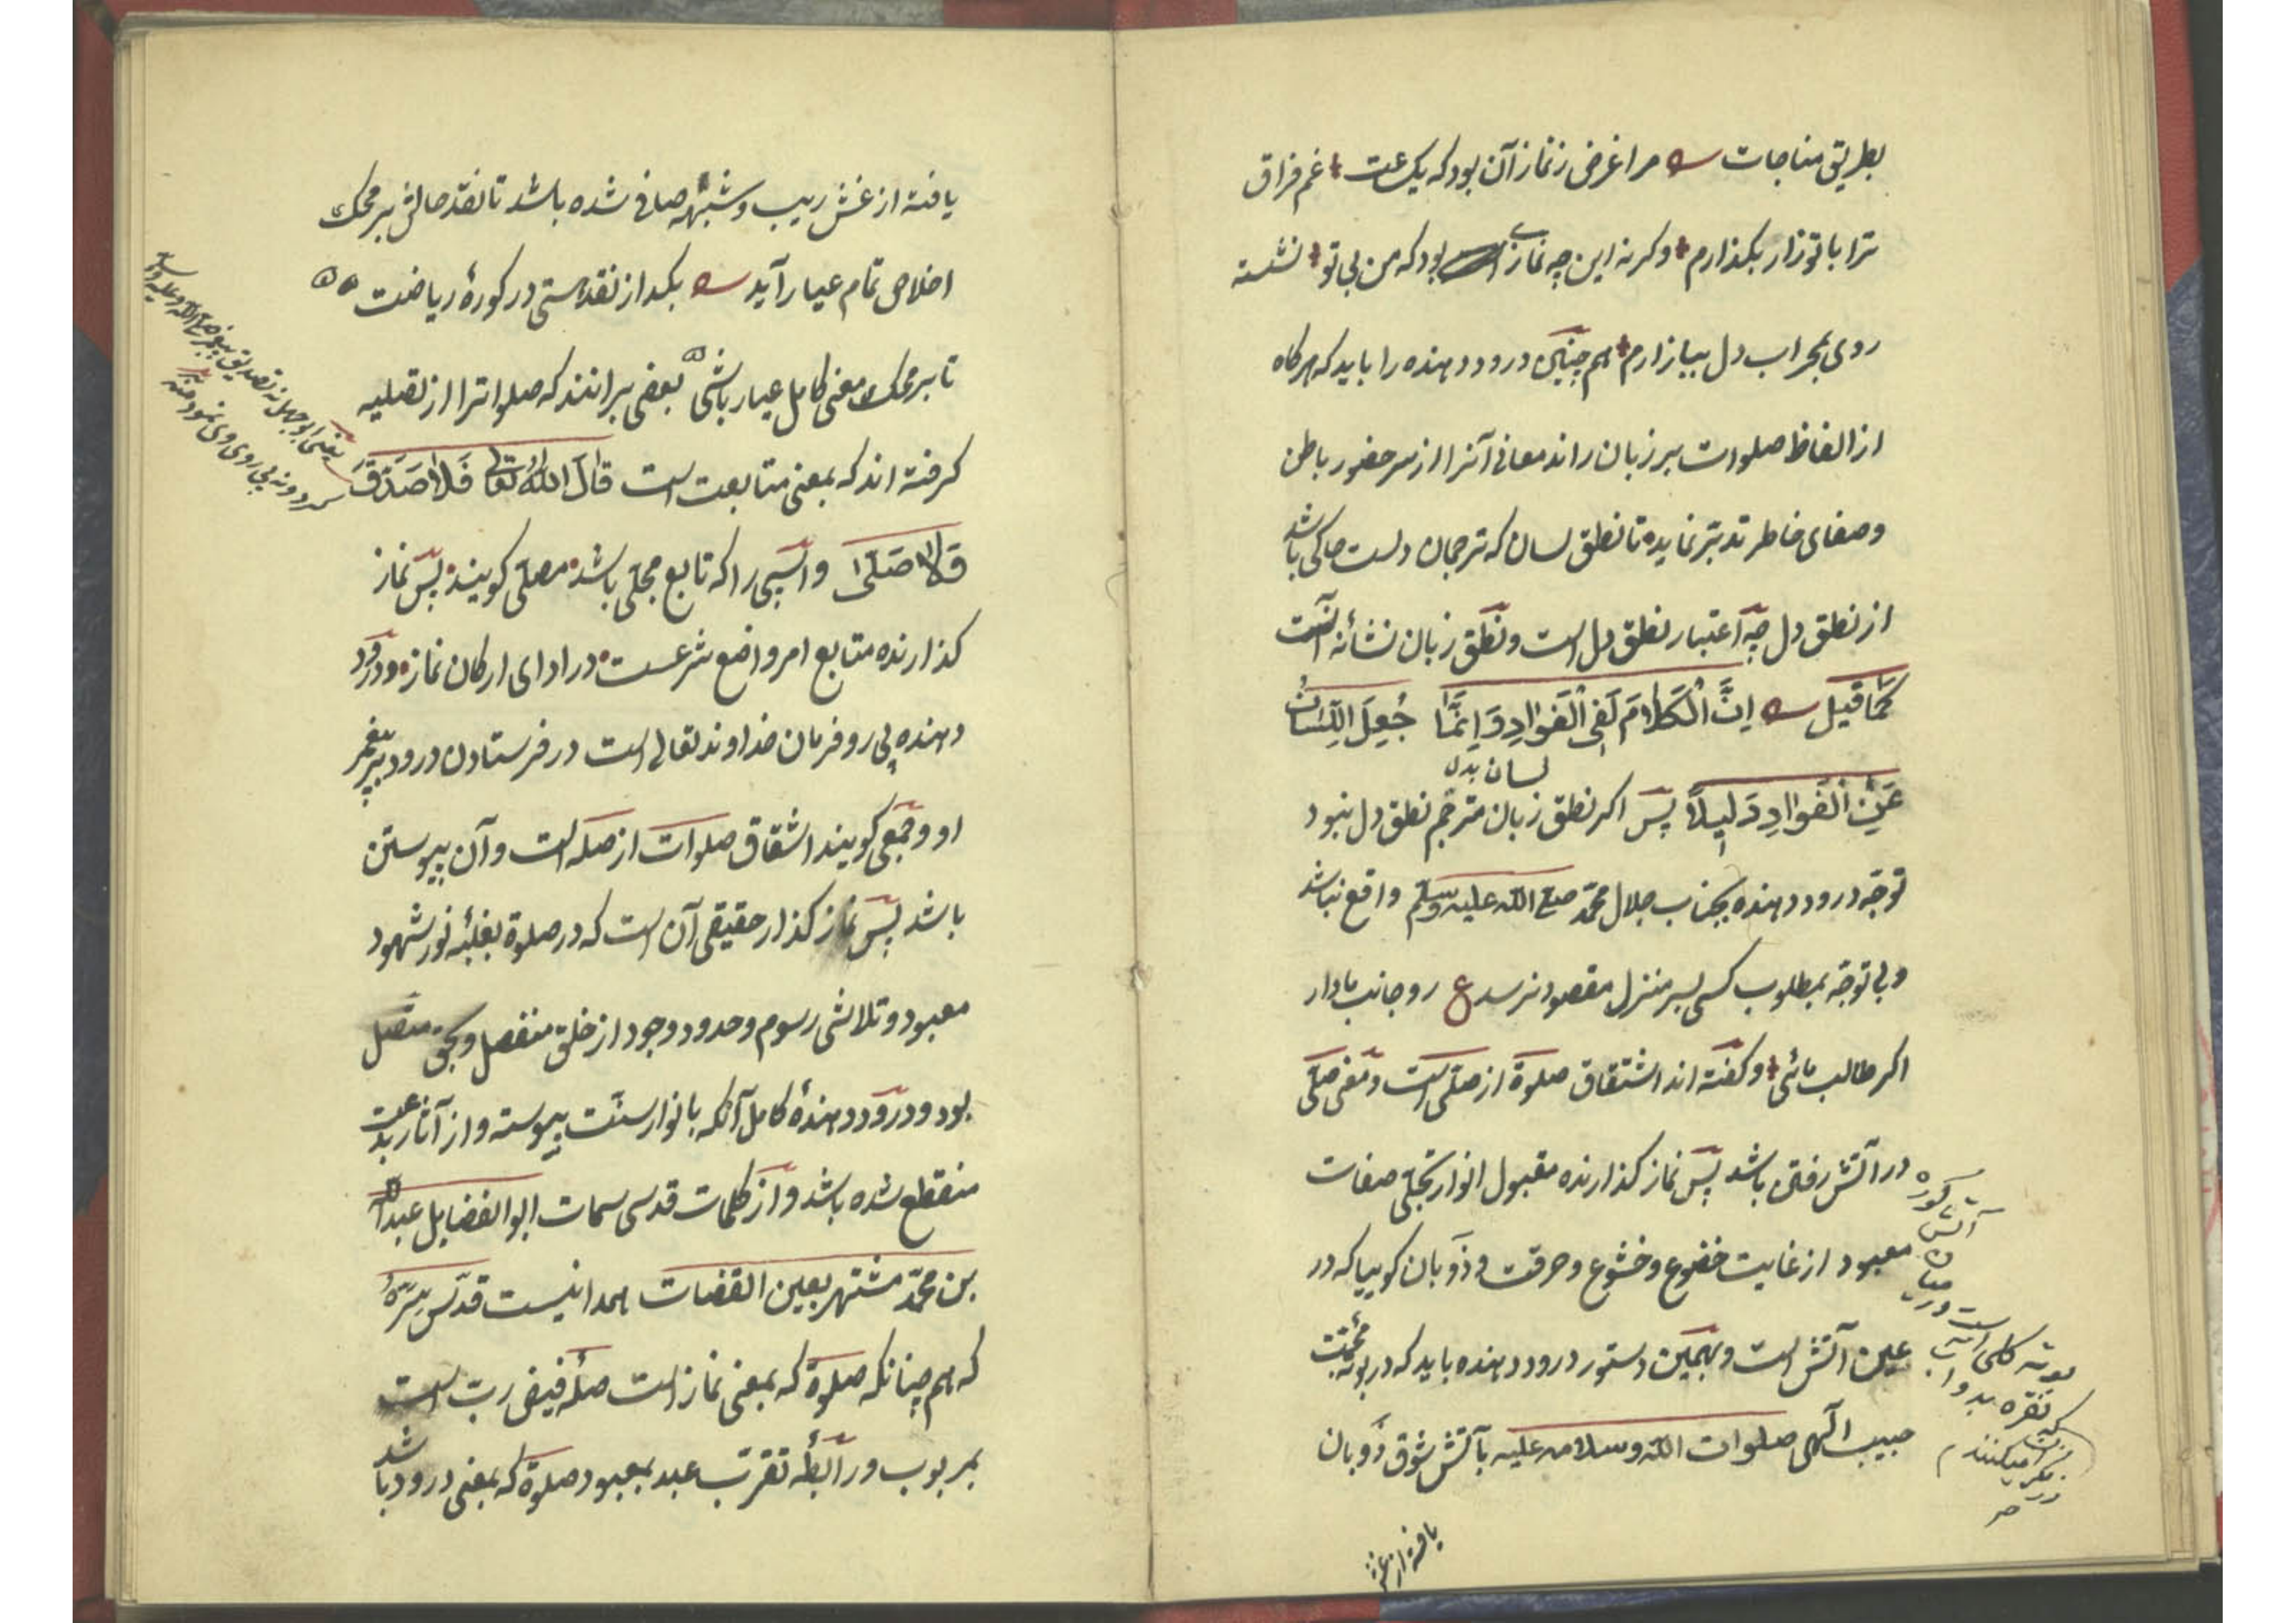 بطریق مناجات مرا غرض ز نماز آن بود که یک ساعت غم فراق
ترا با تو زار بکذارم وکرنه این چه نمازی بود که من بی تو نشسته
روی بمحراب دل ببازارم هم چنین درود دهنده را باید که هرکاه
از الفاظ صلوات بر زبان راند معانی آنرا از سر حضور باطن
وصفای خاطر تدبّر نماید تا نطق لسان که ترجمان دلست حاکی باشد
از نطق دل چه اعتبار نطق دل است ونطق زبان نشأنه آنست
كَمَا قِيلَ اِنَّ الْكَلَامَ لَفِى الْفَوَادِ وَاِنَّمَا جُعِلَ اللِّسَانُ
عَلَى الْفَوَادِ دَلِيلاً پس اکر نطق زبان مترجم نطق دل نبود
لسان بدل
توجّه درود دهنده بجناب جلال محمّد صلی الله علیه وسلم واقع نباشد
وبی توجّه بمطلوب کسی بسر منزل مقصود نرسد ع رو جانب ما دار
اکر طالب مائی وکفته اند اشتقاق صلوة از صلّی است ومعنی صلّی
در آتش رفتن باشد پس نماز کذارنده مقبول انوار تجلّی صفات
معبود از غایت خضوع وخشوع وحرقت وذوبان کوییا که در
عین آتش است وبهمین دستور درود دهنده باید که در بوته محبّت
حبیب الٰهی صلوات الله وسلامه علیه بآتش شوق ذوبان
کوره
آتش
بوته کلی است
که نقره
یافته از غش
یافته از غش ریب وشبهه صافی شده باشد تا نقد حالش بر محک
اخلاص تمام عیار آید بکداز نقد هستی در کورهٔ ریاضت
تا بر محک معنی کامل عیار باشی بعضی برانند که صلوات را از تصلیه
کرفته اند که بمعنی متابعت است قَالَ اللهُ تَعَالَى فَلَا صَدَّقَ
وَلَا صَلَّى واسپی را که تابع مجلّی باشد مصلّی کویند پس نماز
کذارنده متابع امر واضع شرعست در ادای ارکان نماز ودرود
دهنده پی رو فرمان خداوند تعالی است در فرستادن درود بر پیغمبر
او وجمعی کویند اشتقاق صلوات از صله است وآن پیوستن
باشد پس نماز کذار حقیقی آن است که در صلوة بغلبهٔ نور شهود
معبود وتلاشی رسوم وحدود وجود از خلق منفصل وبحق متصل
بود ودرود دهندهٔ کامل آنکه بانوار سنّت پیوسته واز آثار بدعت
منقطع شده باشد واز کلمات قدسی سمات ابو الفضایل عبد الله
بن محمّد مشتهر بعین القضات همدانیست قدّس سرّهُ
که هم چنانکه صلوة که بمعنی نماز است صلهٔ فیض ربّ است
بمربوب ورابطهٔ تقرّب عبد بمعبود صلوة که بمعنی درود باشد
یعنی ابو جهل نه تصدیق پیغمبر صلی الله علیه وسلم
کرد ونه پی روی وی نمود